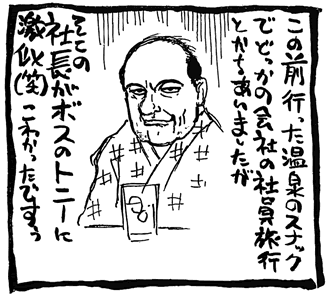 この前行った温泉のスナック
でどっかの会社の社員旅行
とかちあいましたが
そこの
社長がボスのトニーに
激似(笑)こわかったですぅ